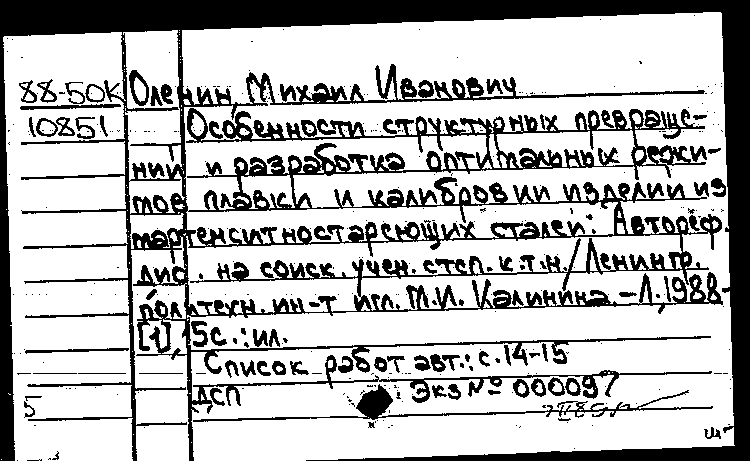 88-50К Оленин, Михаил Иванович
10851 Особенности структурных превраще-
ний и разработка оптимальных режи-
мов плавки и калибровки изделий из
мартенситностареющих сталей: Автореф.
дис. на соиск. учен. степ. к.т.н./Ленингр.
политехн. ин-т им. М.И. Калинина.-Л.,1988-
[1],15с.:ил.
Список работ авт.: с.14-15
ДСП Экз № 000097
5